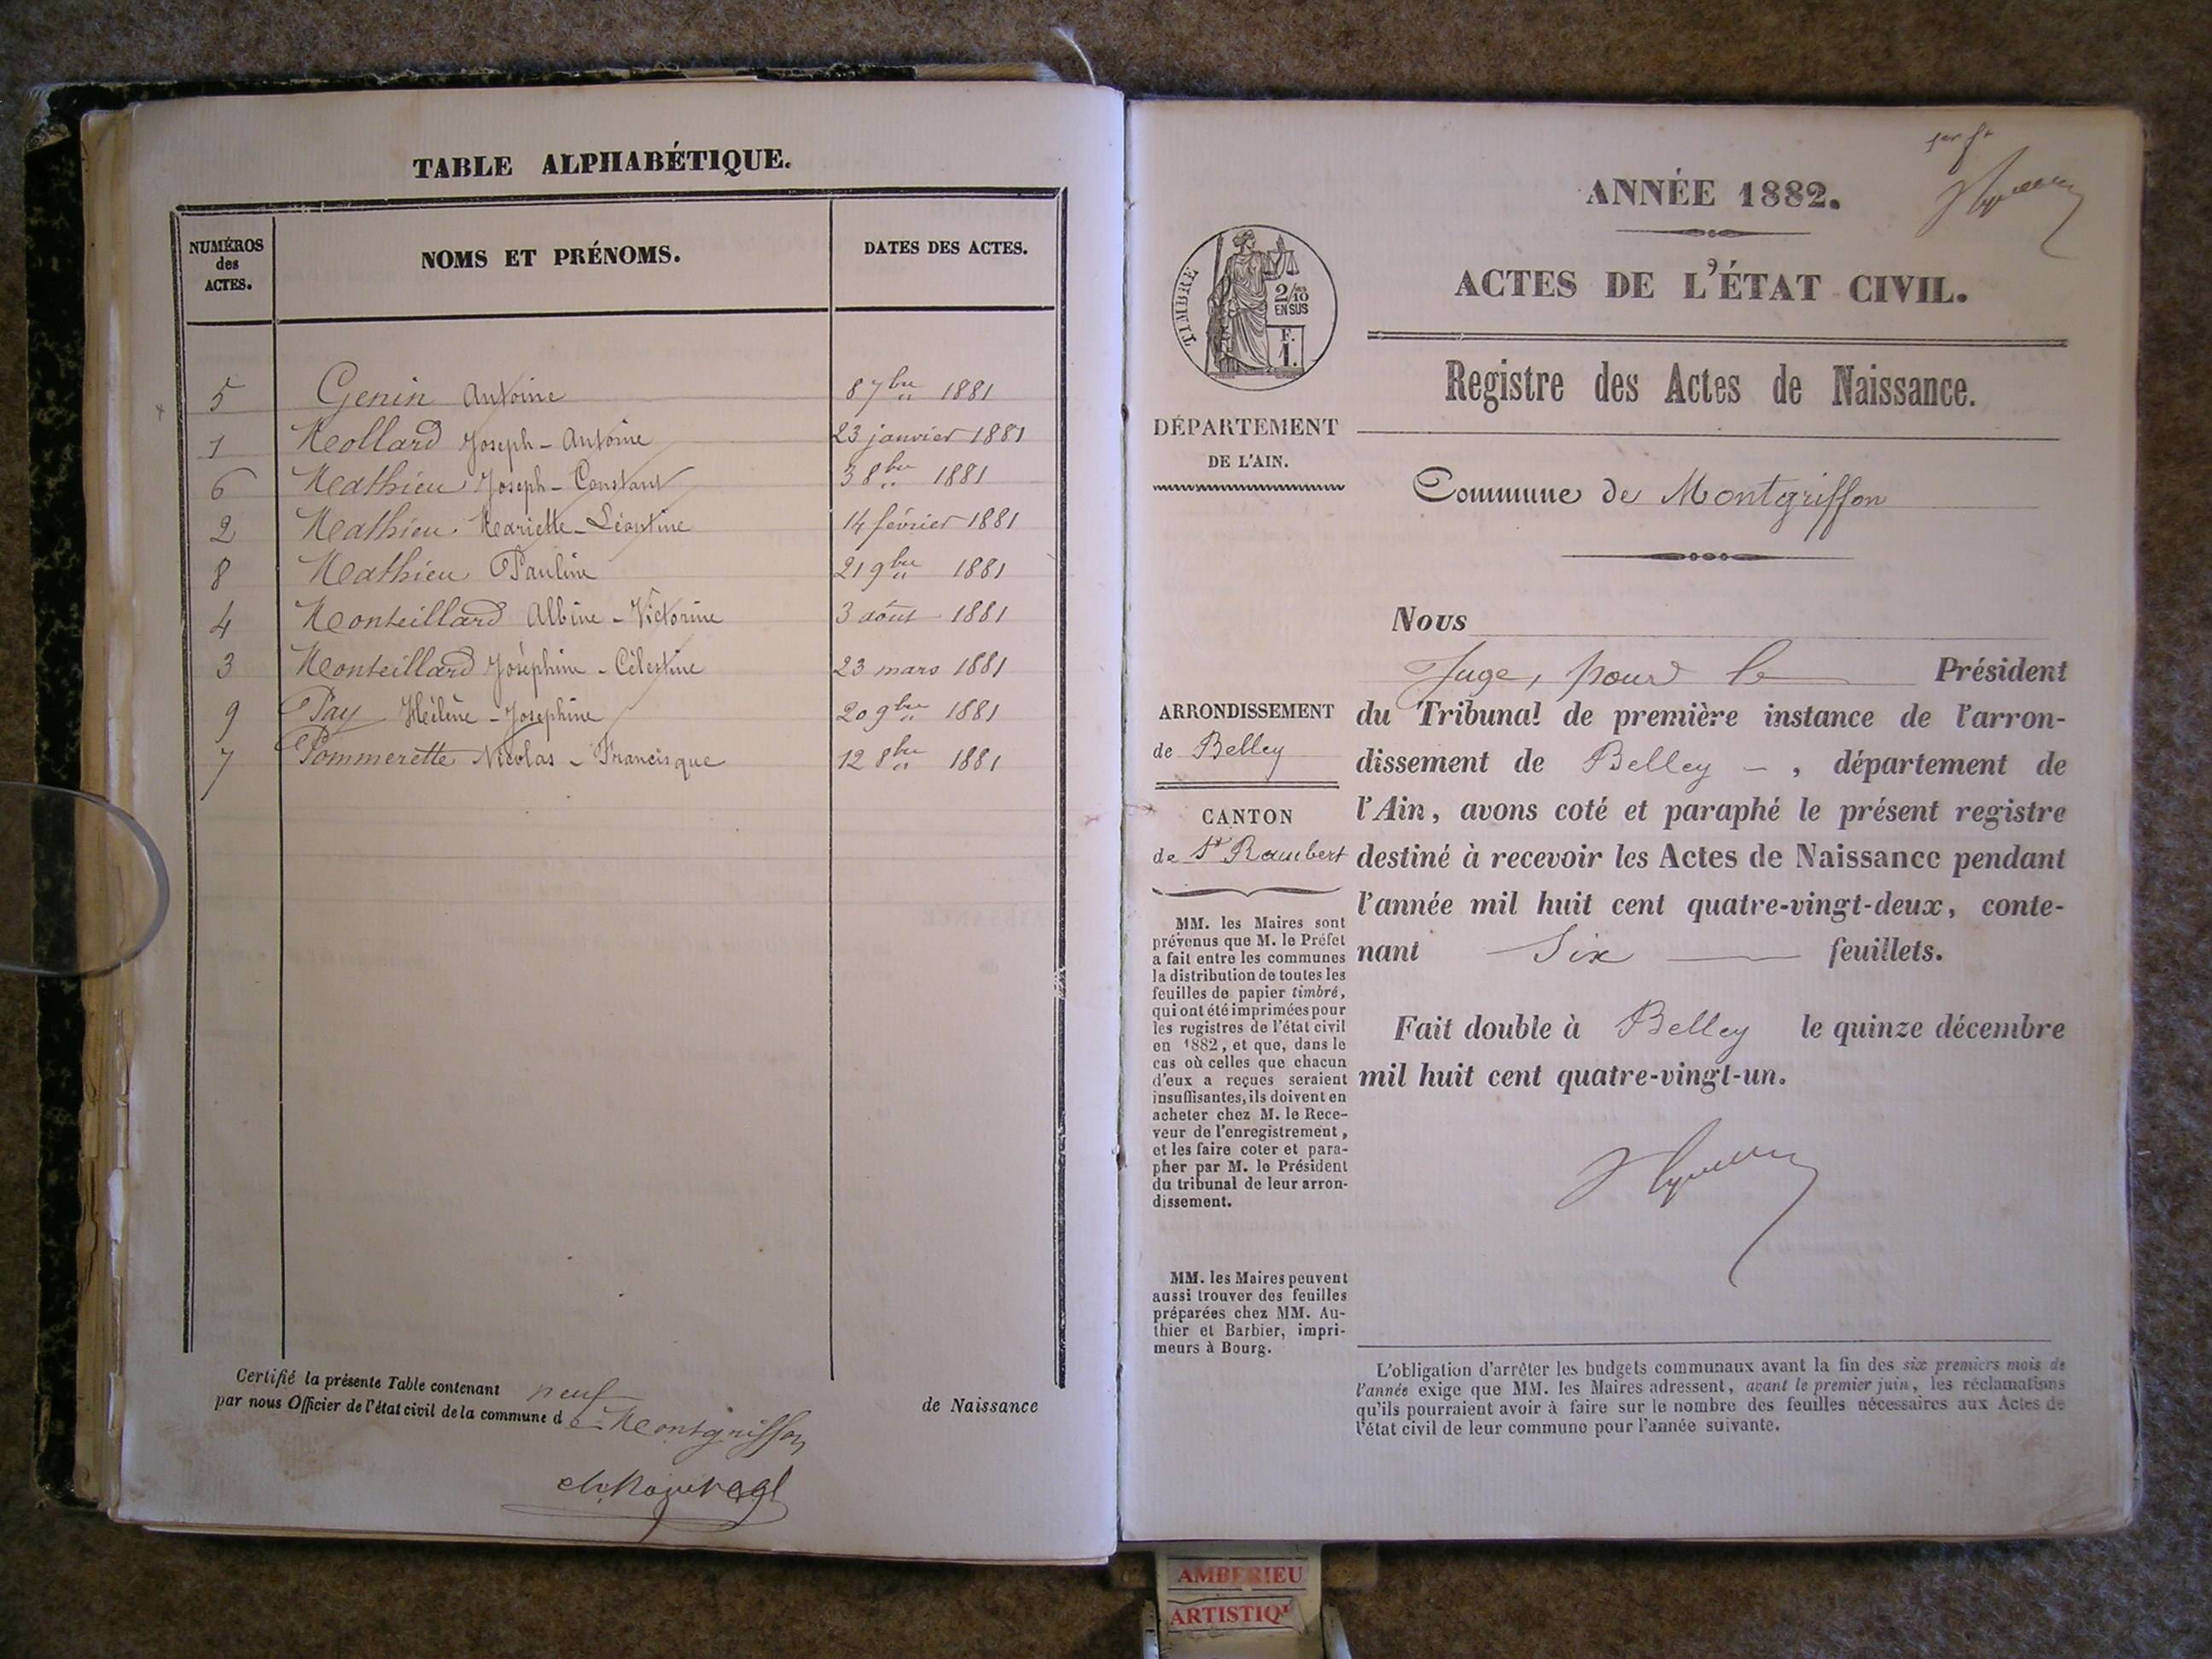 TABLE ALPHABÉTIQUE.
NUMÉROS des ACTES. NOMS ET PRÉNOMS. DATES DES ACTES.
5 Genin Antoine 8 7bre 1881
1 Mollard Joseph-Antoine 23 janvier 1881
6 Mathieu Joseph-Constant 3 8bre 1881
2 Mathieu Mariette-Léontine 14 février 1881
8 Mathieu Pauline 21 9bre 1881
4 Monteillard Albine-Victorine 3 août 1881
3 Monteillard Joséphine-Célestine 23 mars 1881
9 Pay Hélène-Josephine 20 9bre 1881
7 Pommerette Nicolas-Francisque 12 8bre 1881
Certifié la présente Table contenant neuf de Naissance
par nous Officier de l'état civil de la commune de Montgriffon
1er ft
ANNÉE 1882.
ACTES DE L'ÉTAT CIVIL.
TIMBRE
2/10
EN SUS
F.
1.
Registre des Actes de Naissance.
DÉPARTEMENT
DE L'AIN.
Commune de Montgriffon
Nous
Juge, pour le Président
du Tribunal de première instance de l'arron-
dissement de Belley - , département de
l'Ain, avons coté et paraphé le présent registre
destiné à recevoir les Actes de Naissance pendant
l'année mil huit cent quatre-vingt-deux, conte-
nant Six feuillets.
Fait double à Belley le quinze décembre
mil huit cent quatre-vingt-un.
ARRONDISSEMENT
de Belley
CANTON
de St Rambert
MM. les Maires sont
prévenus que M. le Préfet
a fait entre les communes
la distribution de toutes les
feuilles de papier timbré,
qui ont été imprimées pour
les registres de l'état civil
en 1882, et que, dans le
cas où celles que chacun
d'eux a reçues seraient
insuffisantes, ils doivent en
acheter chez M. le Rece-
veur de l'enregistrement,
et les faire coter et para-
pher par M. le Président
du tribunal de leur arron-
dissement.
MM. les Maires peuvent
aussi trouver des feuilles
préparées chez MM. Au-
thier et Barbier, impri-
meurs à Bourg.
L'obligation d'arrêter les budgets communaux avant la fin des six premiers mois de
l'année exige que MM. les Maires adressent, avant le premier juin, les réclamations
qu'ils pourraient avoir à faire sur le nombre des feuilles nécessaires aux Actes de
l'état civil de leur commune pour l'année suivante.
AMBERIEU
ARTISTIQ